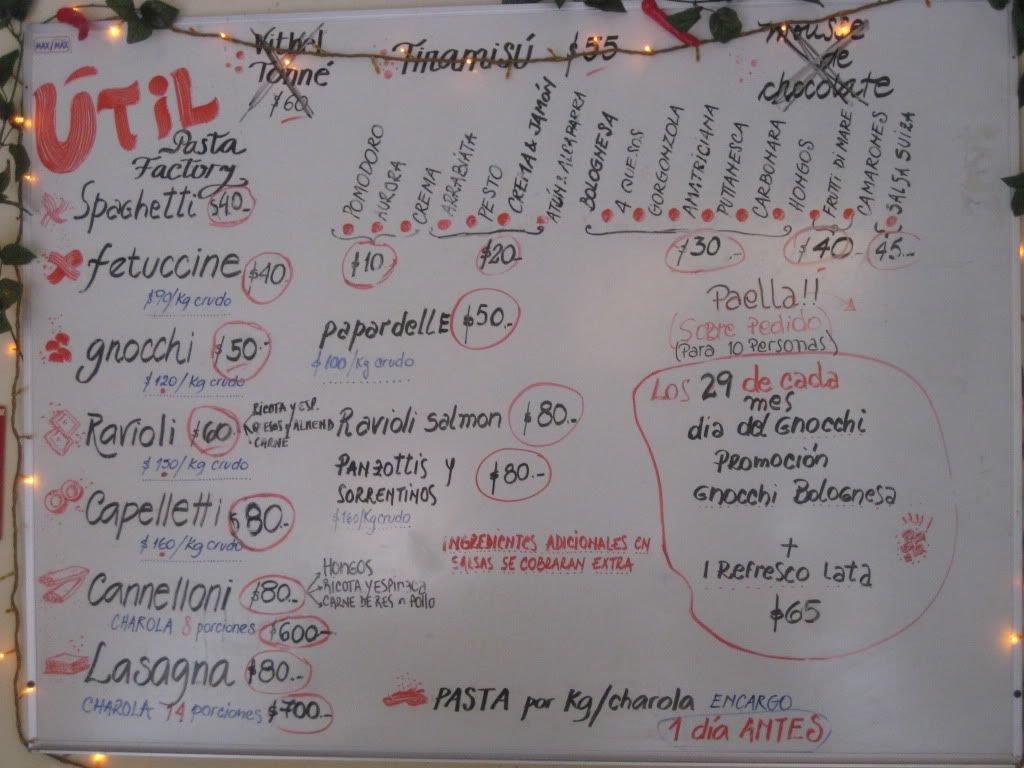 MAX/MAX
Vithel
Tonné
$60
Tiramisú $55
mousse
de
chocolate
ÚTIL
Pasta
Factory
POMODORO
AURORA
CREMA
ARRABIATA
PESTO
CREMA & JAMÓN
ATÚN & ALCAPARRA
BOLOGNESA
4 QUESOS
GORGONZOLA
AMATRICIANA
PUTTANESCA
CARBONARA
HONGOS
FRUTTI DI MARE
CAMARONES
SALSA SUIZA
$10
$20-
$30
$40-
45.-
Spaghetti $40-
fetuccine $40
$90/Kg crudo
gnocchi $50.-
$120/Kg crudo
papardelle $50.-
$100/Kg crudo
Ravioli $60
RICOTA Y ESP.
QUESO Y ALMEND
CARNE
$150/Kg crudo
Ravioli salmon $80.-
Capelletti $80.-
$160/Kg crudo
PANZOTTIS Y
SORRENTINOS
$80.-
$160/Kg crudo
Cannelloni $80.-
HONGOS
RICOTA Y ESPINACA
CARNE DE RES o POLLO
CHAROLA 8 porciones $600-
Lasagna $80.-
CHAROLA 14 porciones $700.-
INGREDIENTES ADICIONALES EN
SALSAS SE COBRARAN EXTRA
Paella!!
(Sobre Pedido)
(Para 10 Personas)
Los 29 de cada
mes
dia del Gnocchi
Promoción
Gnocchi Bolognesa
+
1 Refresco Lata
$65
PASTA por Kg/charola ENCARGO
1 día ANTES